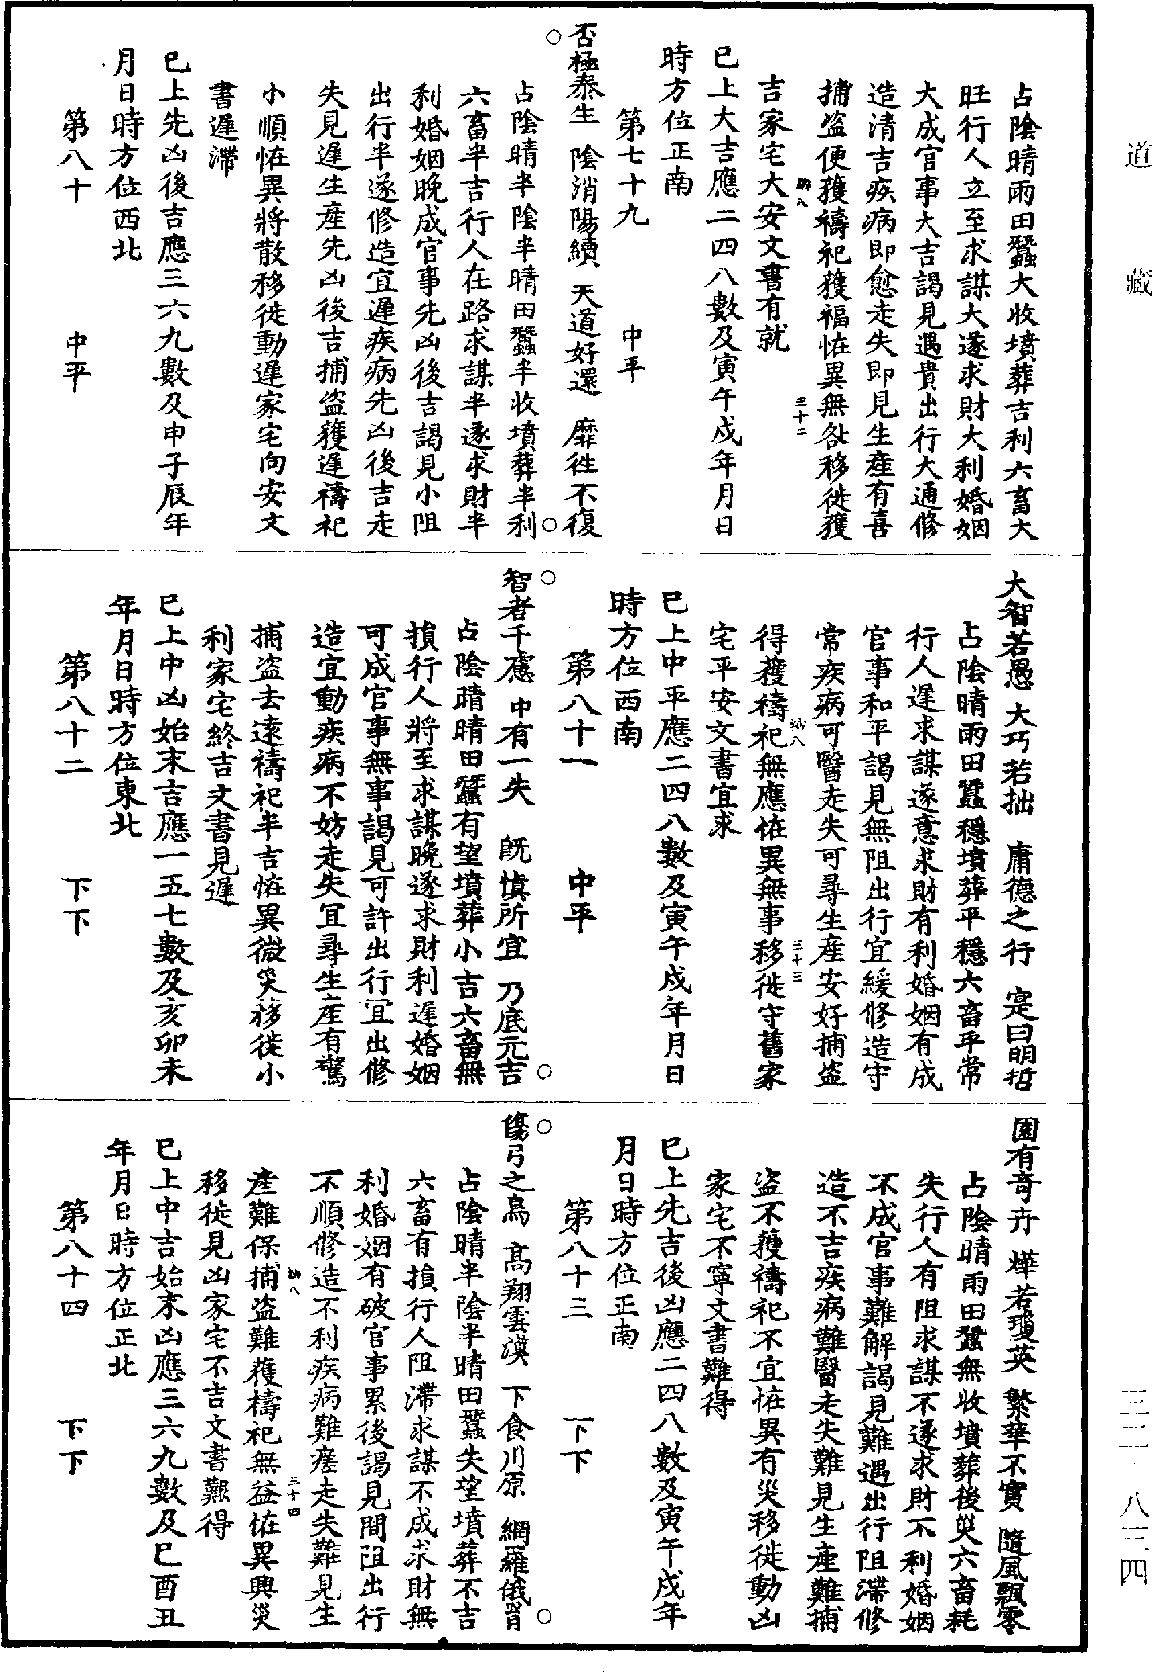 道藏
占陰晴雨田蠶大收墳葬吉利六畜大
旺行人立至求謀大遂求財大利婚姻
大成官事大吉謁見遇貴出行大通修
造清吉疾病即愈走失即見生產有喜
捕盜便獲禱祀獲福恠異無咎移徙獲
吉家宅大安文書有就
已上大吉應二四八數及寅午戍年月日
時方位正南
第七十九 中平
否極泰生 陰消陽續 天道好還 靡徃不復
占陰晴半陰半晴田蠶半收墳葬半利
六畜半吉行人在路求謀半遂求財半
利婚姻晚成官事先凶後吉謁見小阻
出行半遂修造宜遲疾病先凶後吉走
失見遲生產先凶後吉捕盜獲遲禱祀
小順恠異將散移徙動遲家宅向安文
書遲滯
已上先凶後吉應三六九數及申子辰年
月日時方位西北
第八十 中平
大智若愚 大巧若拙 庸德之行 寔曰明哲
占陰晴雨田蠶穩墳葬平穩六畜平常
行人遲求謀遂意求財有利婚姻有成
官事和平謁見無阻出行宜緩修造守
常疾病可醫走失可尋生產安好捕盜
得獲禱祀無應恠異無事移徙守舊家
宅平安文書宜求
已上中平應二四八數及寅午戍年月日
時方位西南
第八十一 中平
智者千慮 中有一失 既慎所宜 乃底元吉
占陰晴晴田蠶有望墳葬小吉六畜無
損行人將至求謀晚遂求財利遲婚姻
可成官事無事謁見可許出行宜出修
造宜動疾病不妨走失宜尋生產有驚
捕盜去遠禱祀半吉恠異微災移徙小
利家宅終吉文書見遲
已上中凶始末吉應一五七數及亥卯未
年月日時方位東北
第八十二 下下
園有奇卉 燁若瓊英 繁華不實 隨風飄零
占陰晴雨田蠶無收墳葬後災六畜耗
失行人有阻求謀不遂求財不利婚姻
不成官事難解謁見難遇出行阻滯修
造不吉疾病難醫走失難見生產難捕
盜不獲禱祀不宜恠異有災移徙動凶
家宅不寧文書難得
已上先吉後凶應二四八數及寅午戍年
月日時方位正南
第八十三 下下
傷弓之鳥 高翔雲漢 下食川原 網羅俄罥
占陰晴半陰半晴田蠶失望墳葬不吉
六畜有損行人阻滯求謀不成求財無
利婚姻有破官事累後謁見間阻出行
不順修造不利疾病難瘥走失難見生
產難保捕盜難獲禱祀無益恠異興災
移徙見凶家宅不吉文書難得
已上中吉始末凶應三六九數及巳酉丑
年月日時方位正北
第八十四 下下
三十二
三十三
三十四
三二·八三四